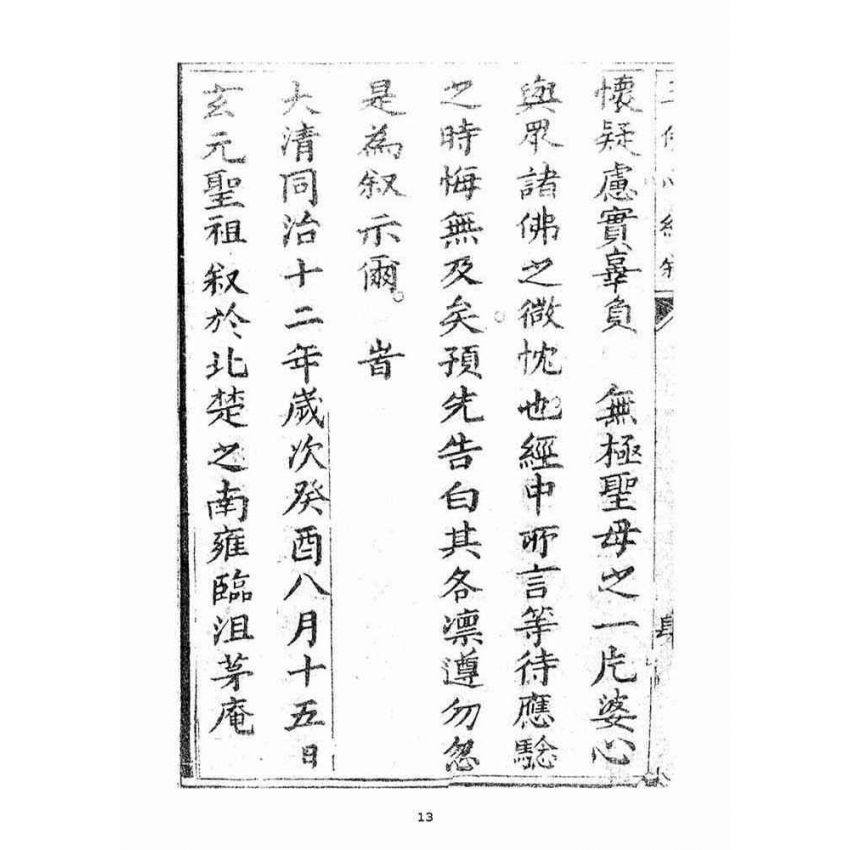 懷疑慮實辜負　無極聖母之一片婆心
與眾諸佛之微忱也經中所言等待應驗
之時悔無及矣預先告白其各凛遵勿忽
是為叙示爾。　旹
大清同治十二年歲次癸酉八月十五日
玄元聖祖叙於北楚之南雍臨沮茅庵
13